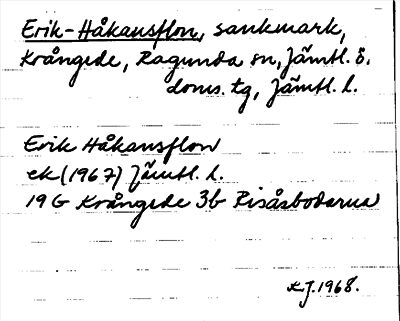 Erik-Håkansflon, sankmark,
Krångede, Ragunda sn, Jämtl. ö.
doms. tg, Jämtl. l.
Erik Håkansflon
ek (1967) Jämtl. l.
19 G Krångede 3b Risåsbodarna
K.J. 1968.